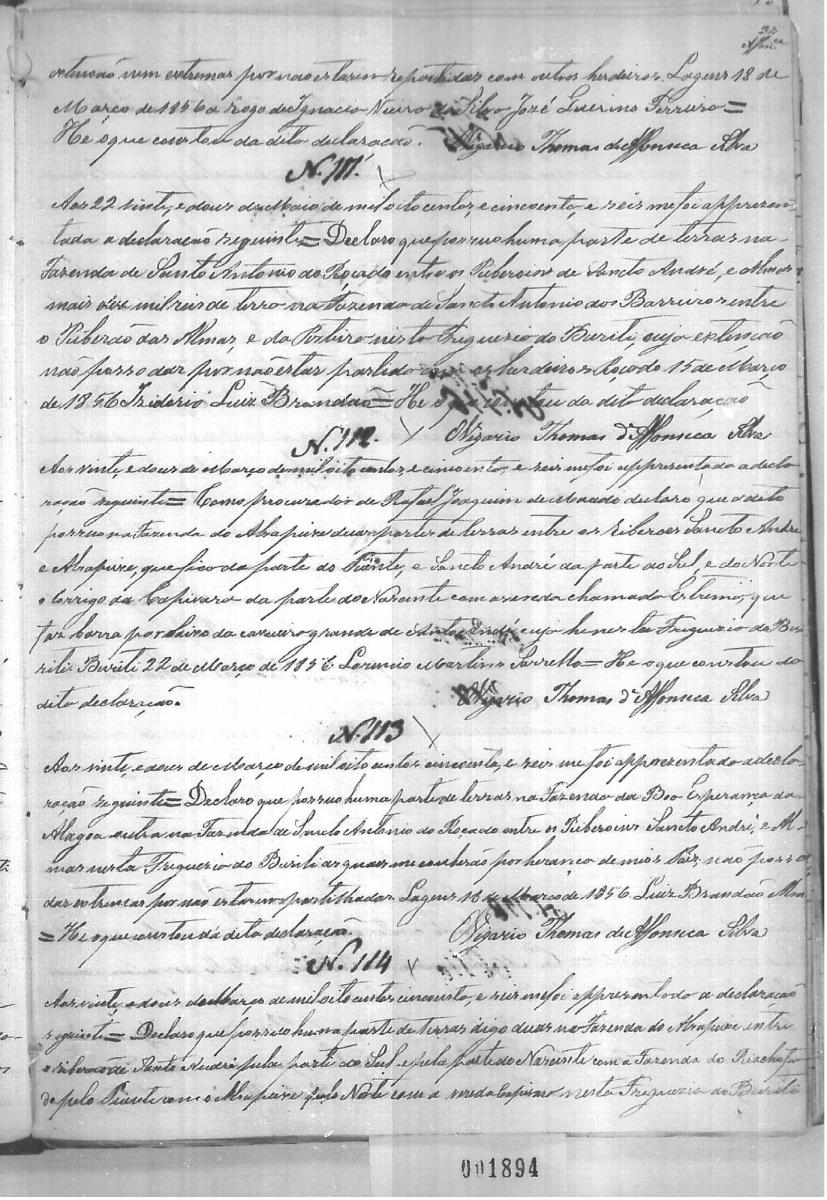 32
Affon.ca
extensão nem extremas por não estarem repartidas com outros herdeiros. Lagens 18 de
Março de 1856 a rogo de Ignacio Vieira da Silva José Luerino Ferreira =
He o que constou da dita declaração. Vigario Thomas de Affonseca Silva
N. 111.
Aos 22 vinte, e dous de Maio de mil oito centos, e cincoenta, e seis me foi apprezen-
tada a declaração seguinte = Declaro que possuo huma parte de terras na
Fazenda de Santo Antonio do Roçado entre os Riberoins de Sancto André, e Almas
mais mil reis de terra na Fazenda de Sancto Antonio dos Barreiros entre
o Riberão das Almas, e da nesta Freguezia do Buriti, cuja extenção
não posso dar por não estar partido os herdeiros Roçado 15 de Março
de 1856 Izidorio Luiz Brandão = He o que constou da dita declaração
N. 112. Vigario Thomas d'Affonseca Silva
Aos vinte, e dous de Março de mil oito centos, e cincoenta, e seis me foi appresentada a decla-
ração seguinte = Como procurador de Rafael Joaquim de Macedo declaro que o dito
possue na Fazenda do duas partes de terras entre os Riberoes Sancto Andre
e que fica da parte do Puente, e Sancto André da parte do Sul, e do Norte
o Corrigo da Capivara da parte do Nascente com a vereda chamado Extremo, que
faz barra por baixo da grande de Santo André cujo he nesta Freguezia do Bu-
riti. Buriti 22 de Março de 1856 Lourencio Martins Sarrello = He o que constou da
dita declaração. Vigario Thomas d'Affonseca Silva
N. 113
Aos vinte, e dous de Março de mil oito centos cincoenta, e seis me foi apprezentada a decla-
ração seguinte = Declaro que possuo huma parte de terras na Fazenda da Boa Esperança da
Alagoa outra na Fazenda de Sancto Antonio do Roçado entre os Riberoins Sancto André, e Al-
mas nesta Freguezia do Buriti as quaes me couberão por herança de meos Pais, não posso
dar extremas por não estarem partilhadas. Lagens 18 de Março de 1856 Luiz Brandão
= He o que constou da dita declaração. Vigario Thomas de Affonseca Silva
N. 114
Aos vinte, e dous de Março de mil oito centos cincoenta, e seis me foi appresentado a declaração
seguinte = Declaro que possuo huma parte de terras digo duas na Fazenda do entre
o riberão de Santo André pela parte do Sul e pela parte do Nascente com a Fazenda do
do pelo Puente com o pelo Norte com a vereda Capivara nesta Freguezia do Buriti
001894